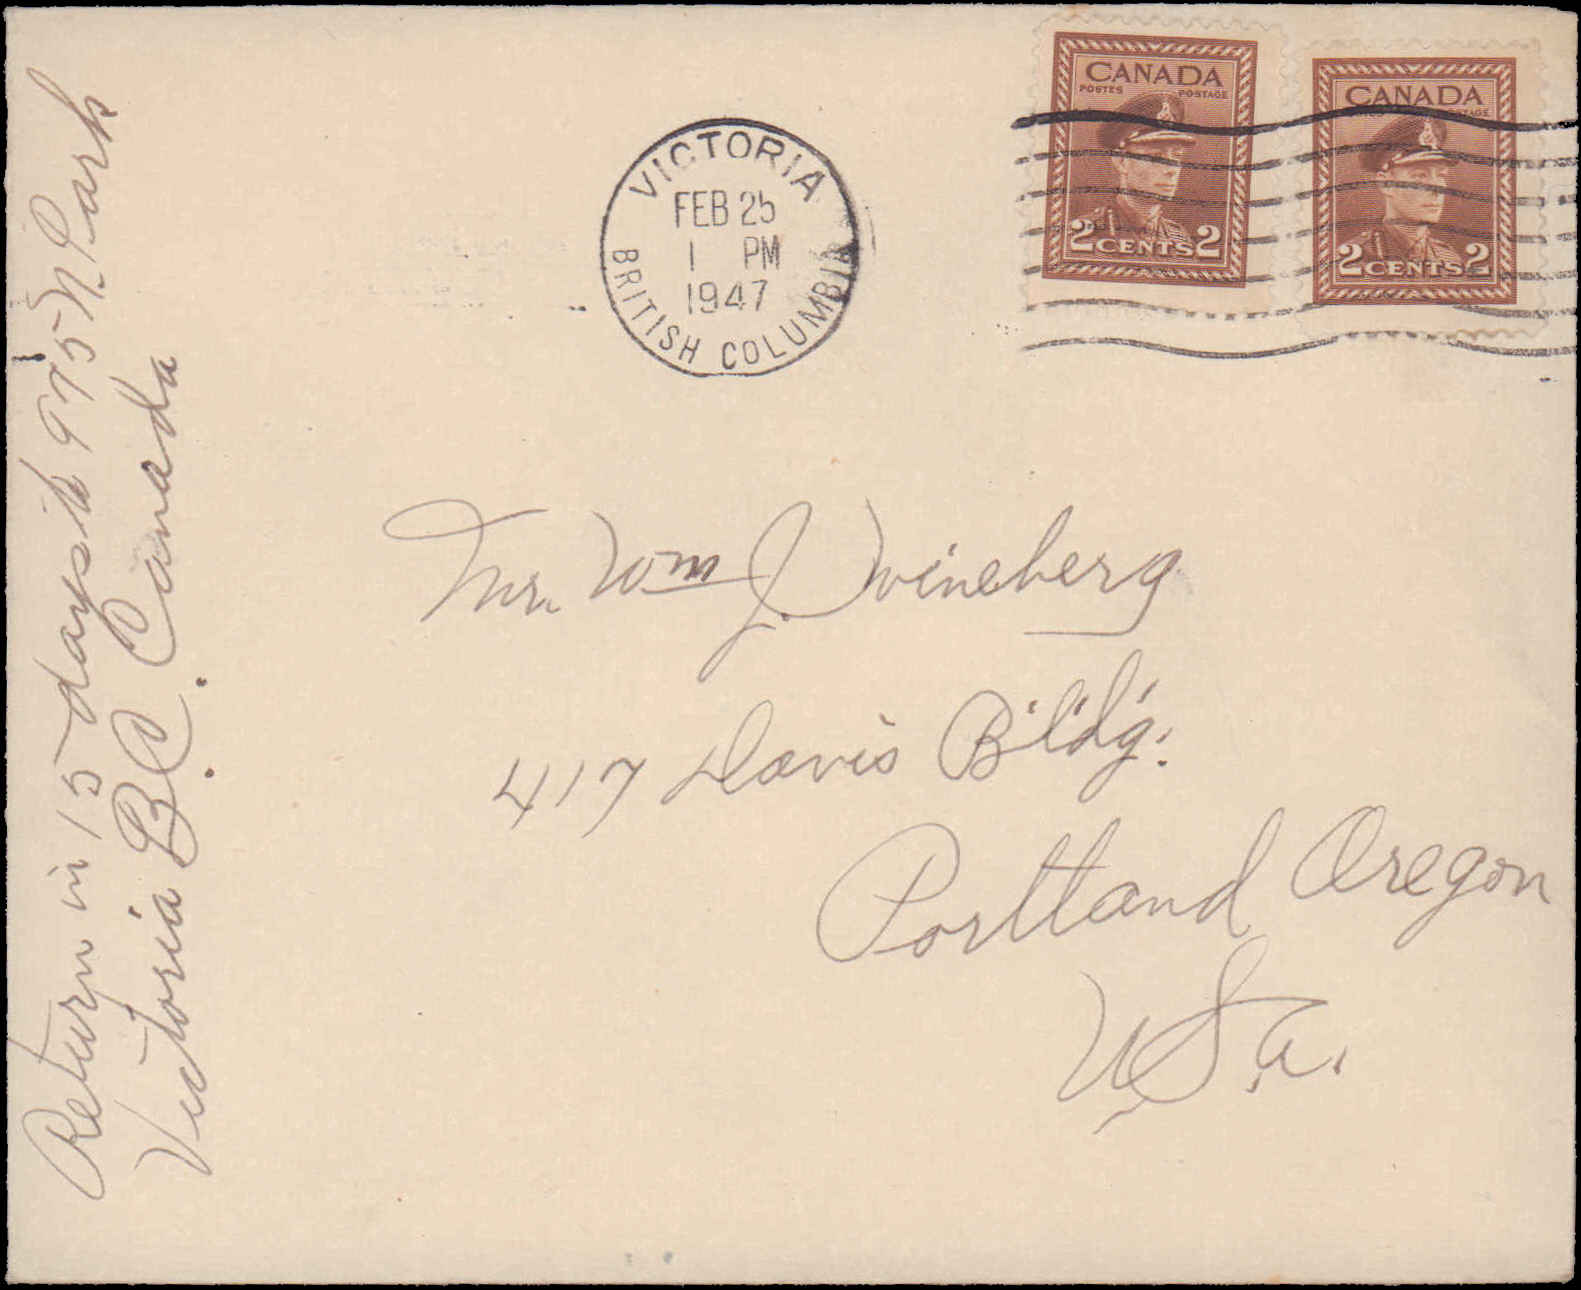 Return in 15 days to 975 N Park
Victoria B.C. Canada
VICTORIA
FEB 25
1 PM
1947
BRITISH COLUMBIA
CANADA
POSTES POSTAGE
2 CENTS 2
CANADA
POSTAGE
2 CENTS 2
Mr. Wm J. Wineberg
417 Davis B'ld'g.
Portland Oregon
U.S.A.